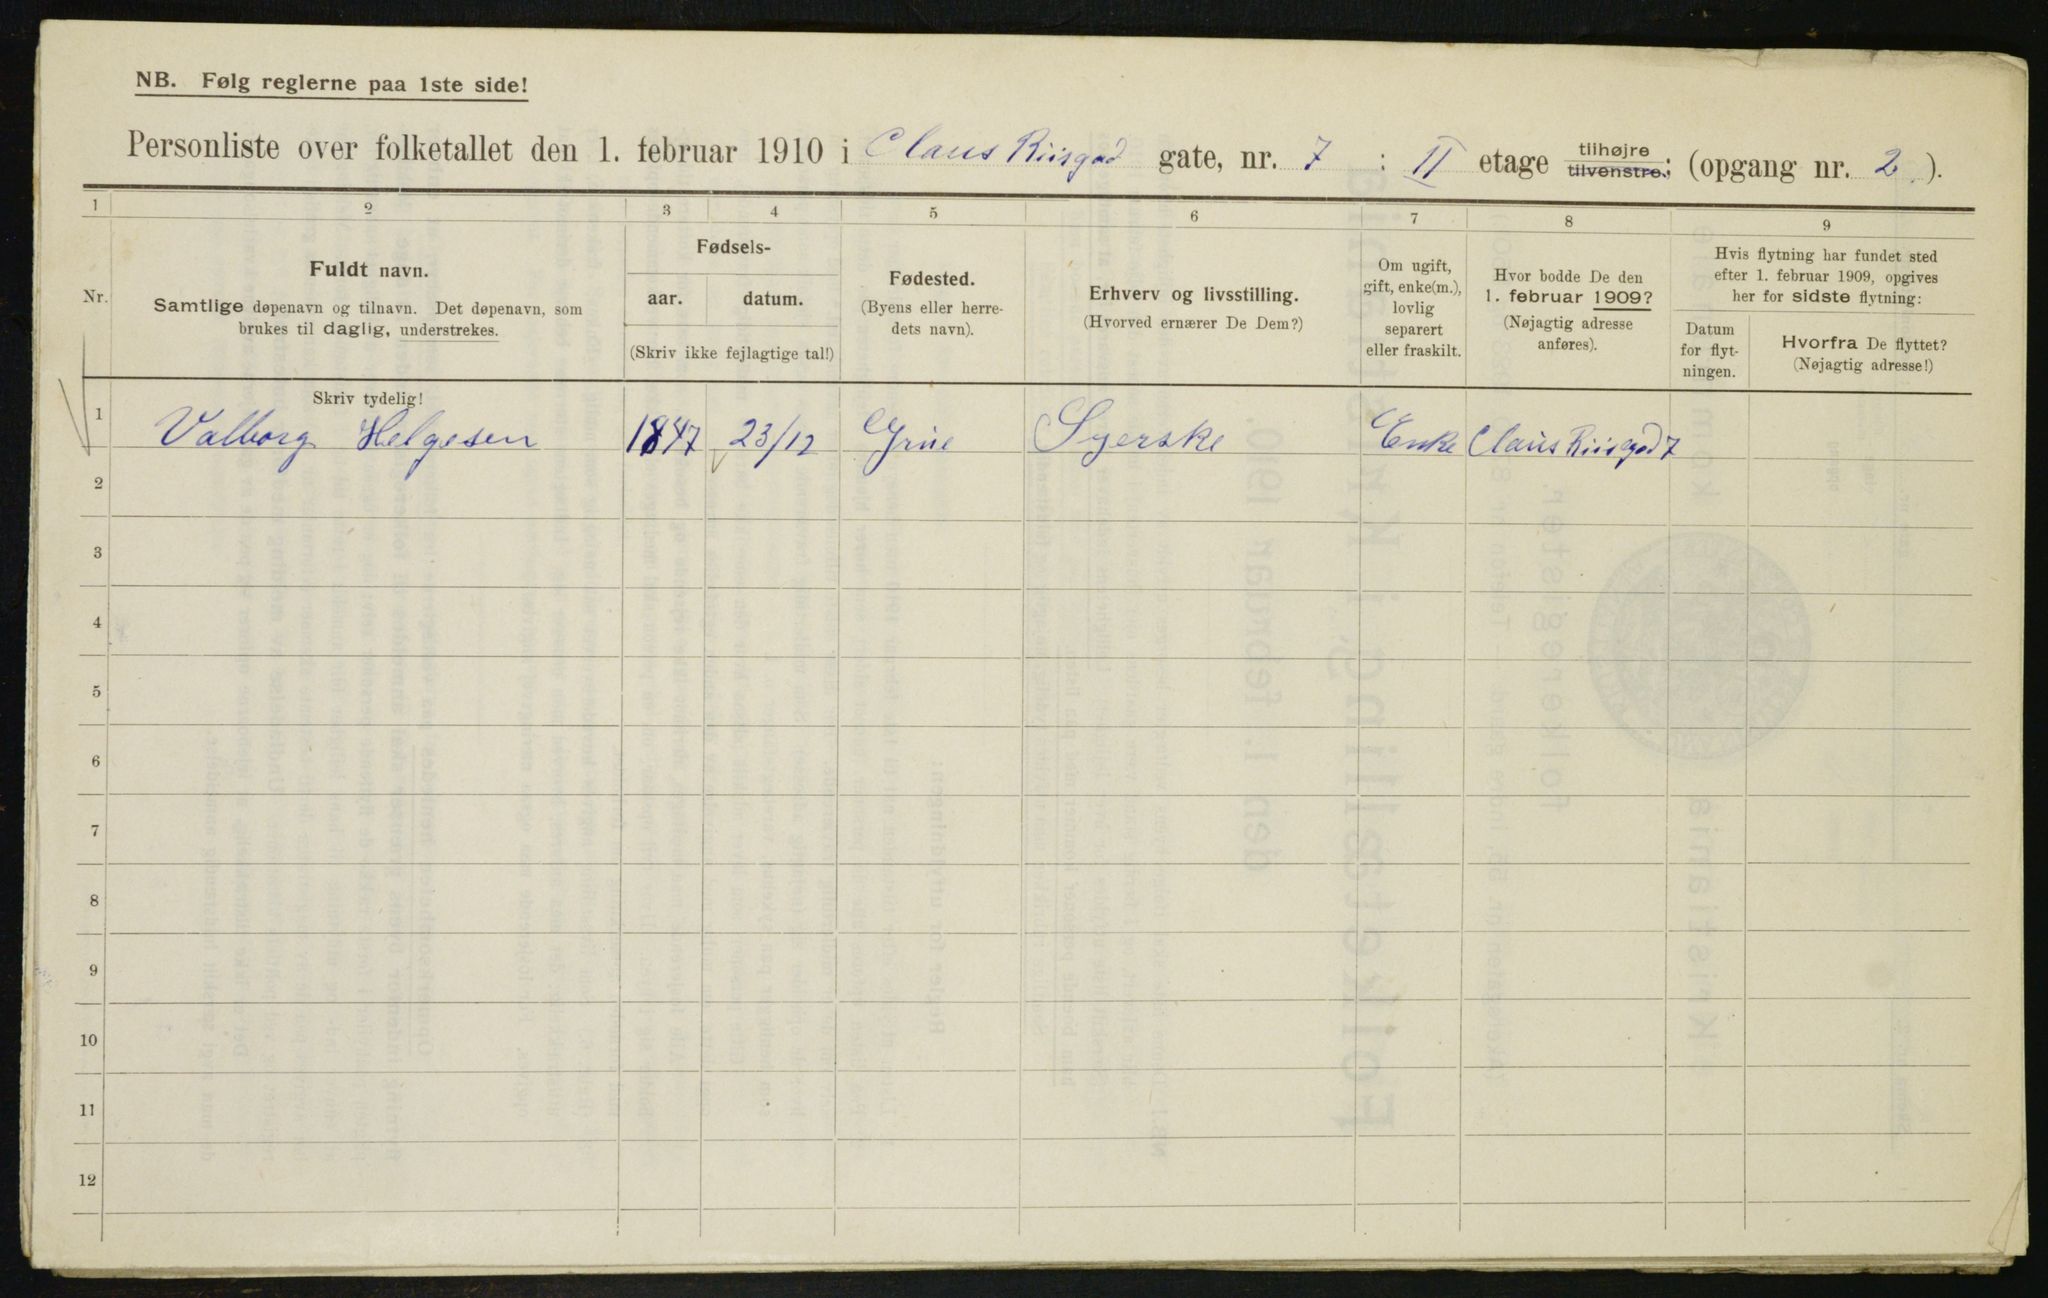 NB. Følg reglerne paa 1ste side!
Personliste over folketallet den 1. februar 1910 i Claus Riisgad gate, nr. 7 : II etage tilhøjre tilvenstre; (opgang nr. 2.).
1 2 3 4 5 6 7 8 9
Nr.
Fuldt navn.
Samtlige døpenavn og tilnavn. Det døpenavn, som
brukes til daglig, understrekes.
Fødsels-
aar. datum.
(Skriv ikke fejlagtige tal!)
Fødested.
(Byens eller herre-
dets navn).
Erhverv og livsstilling.
(Hvorved ernærer De Dem?)
Om ugift,
gift, enke(m.),
lovlig
separert
eller fraskilt.
Hvor bodde De den
1. februar 1909?
(Nøjagtig adresse
anføres).
Hvis flytning har fundet sted
efter 1. februar 1909, opgives
her for sidste flytning:
Datum
for flyt-
ningen.
Hvorfra De flyttet?
(Nøjagtig adresse!)
Skriv tydelig!
1 Valborg Helgesen 1847 23/12 Grue Syerske Enke Claus Riisgad 7
2
3
4
5
6
7
8
9
10
11
12